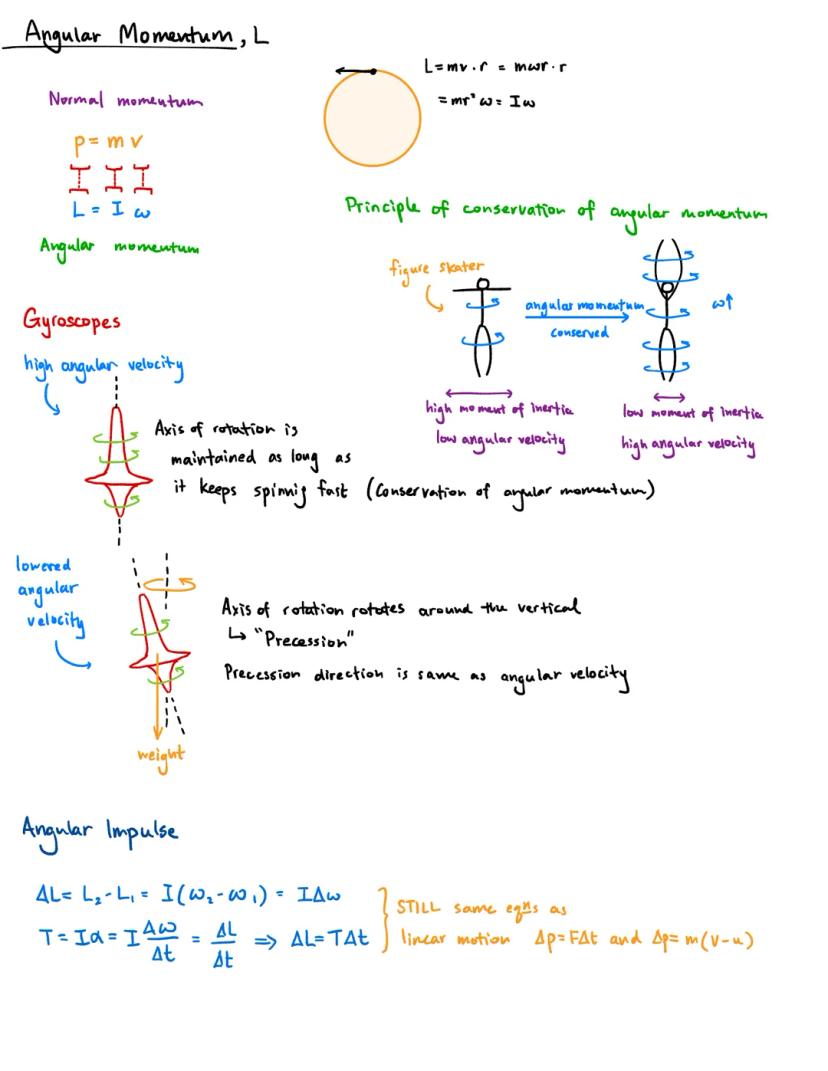 Angular Momentum, L
L=mv·r = mωr·r
= mr²ω = Iω
Normal momentum
p = m v
L = I ω
Angular momentum
Principle of conservation of angular momentum
figure skater
angular momentum
conserved
ω↑
high moment of inertia
low angular velocity
low moment of inertia
high angular velocity
Gyroscopes
high angular velocity
Axis of rotation is
maintained as long as
it keeps spinnig fast (conservation of angular momentum)
lowered
angular
velocity
Axis of rotation rotates around the vertical
↳ "Precession"
Precession direction is same as angular velocity
weight
Angular Impulse
ΔL= L₂-L₁ = I(ω₂-ω₁) = IΔω
T = Iα = I Δω/Δt = ΔL/Δt ⇒ ΔL=TΔt
STILL same eqns as
linear motion Δp=FΔt and Δp= m(v-u)